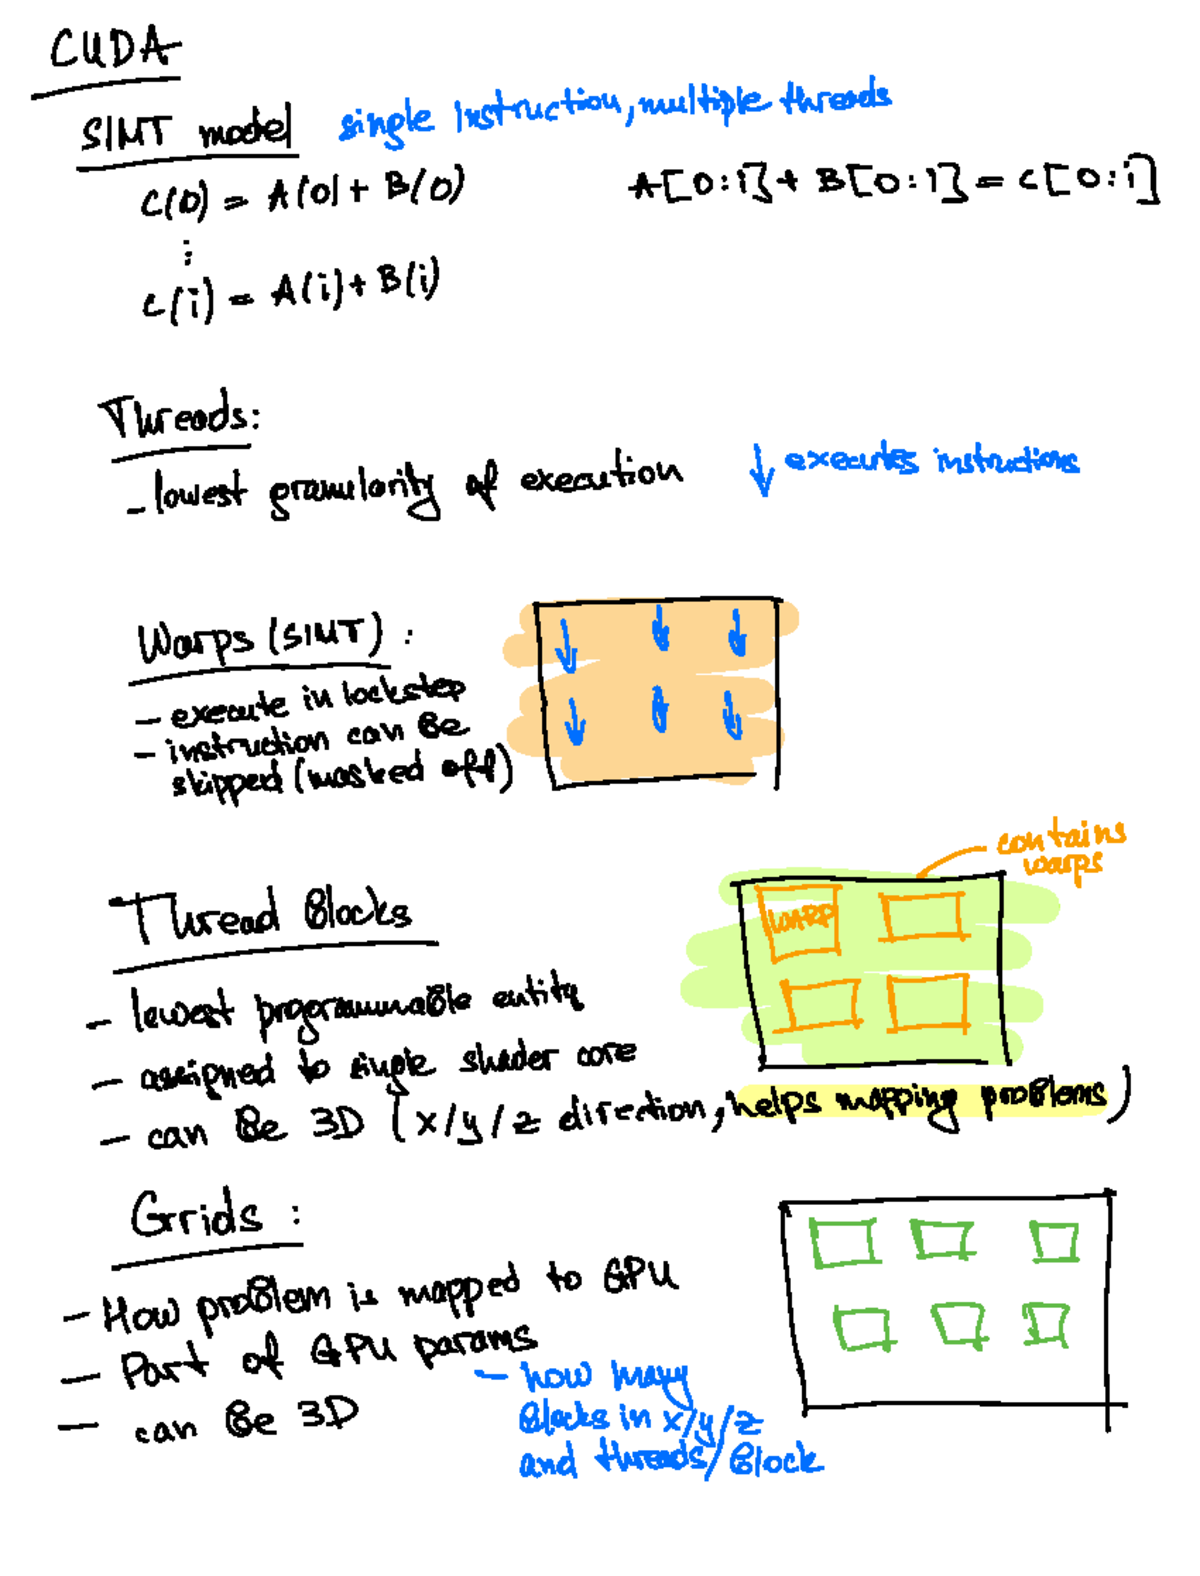 CUDA
SIMT model single Instruction, multiple threads
C(0) = A(0) + B(0) A[0:i] + B[0:i] = C[0:i]
⋮
C(i) = A(i) + B(i)
Threads:
- lowest granularity of execution ↓ executes instructions
Warps (SIMT) :
- execute in lockstep
- instruction can be
skipped (masked off)
contains
warps
Thread Blocks
WARP
- lowest programmable entity
- assigned to single shader core
- can be 3D (x/y/z direction, helps mapping problems)
Grids :
- How problem is mapped to GPU
- Part of GPU params
- how many
blocks in x/y/z
and threads/block
- can be 3D